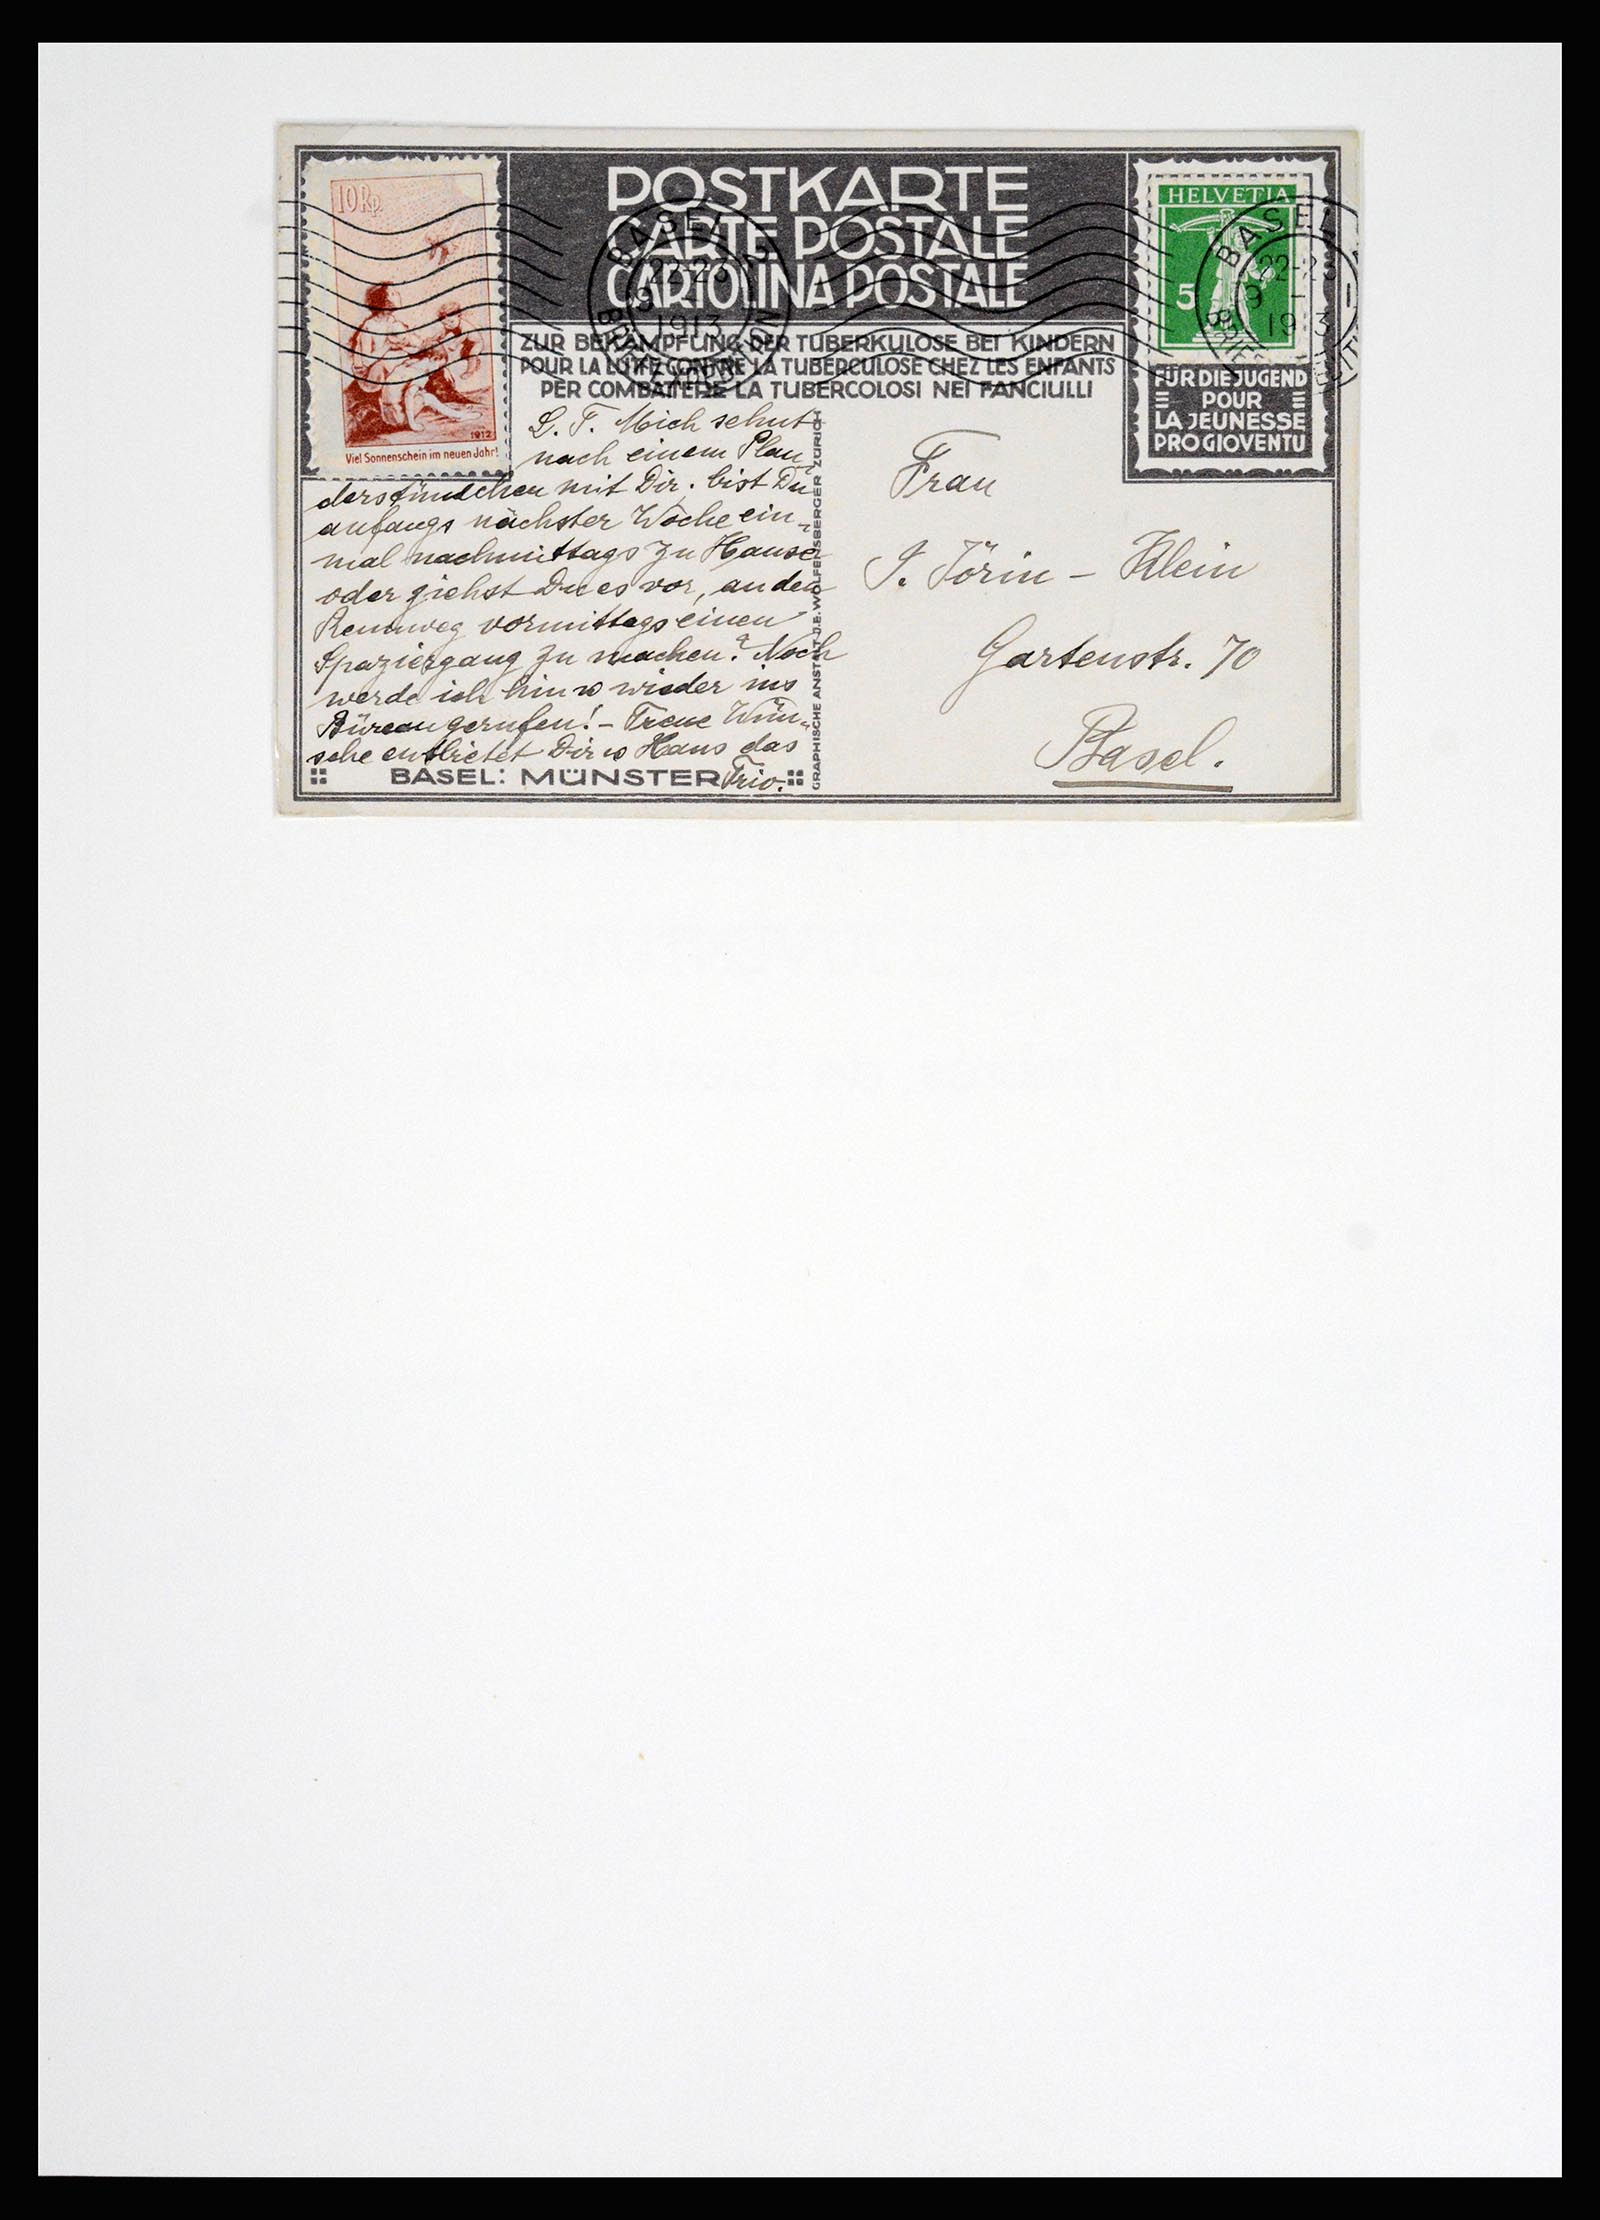 POSTKARTE
CARTE POSTALE
CARTOLINA POSTALE
ZUR BEKÄMPFUNG DER TUBERKULOSE BEI KINDERN
POUR LA LUTTE CONTRE LA TUBERCULOSE CHEZ LES ENFANTS
PER COMBATTERE LA TUBERCOLOSI NEI FANCIULLI
10 Rp.
1912
Viel Sonnenschein im neuen Jahr!
BASEL 2
22-23
1913
HELVETIA
5
BASEL
22-23
1913
FÜR DIE JUGEND
POUR
LA JEUNESSE
PRO GIOVENTU
L. F. Mich sehnt
nach einem Plau-
derstündchen mit Dir. bist Du
anfangs nächster Woche ein-
mal nachmittags zu Hause
oder ziehst Du es vor, an den
Rennweg vormittags einen
Spaziergang zu machen? Noch
werde ich hin u wieder ins
Büreau gerufen! – Treue Wün-
sche entbietet Dir u Hans das
Trio.
BASEL: MÜNSTER
GRAPHISCHE ANSTALT J.E. WOLFENSBERGER ZÜRICH
Frau
J. Jörin – Klein
Gartenstr. 70
Basel.